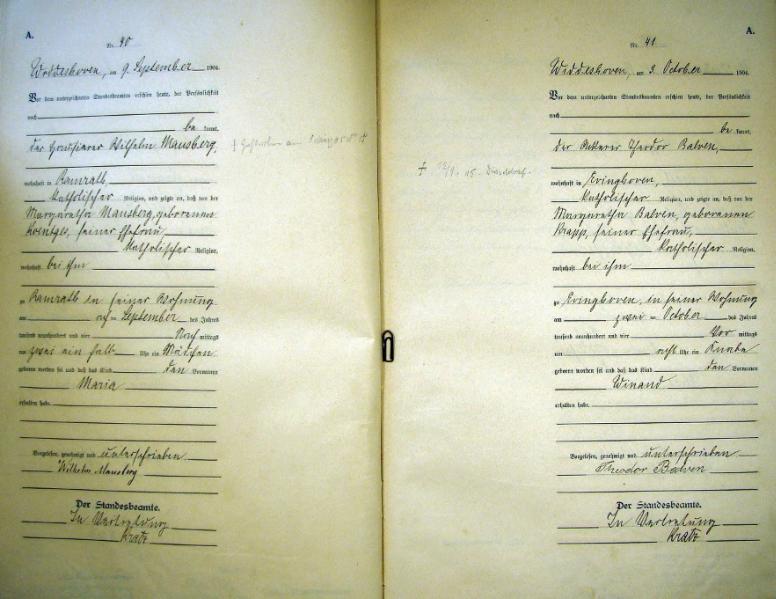 A.
Nr. 40
Widdeshoven, am 9. September 1904.
Vor dem unterzeichneten Standesbeamten erschien heute, der Persönlichkeit
nach
be kannt,
der Wilhelm Mausberg,
wohnhaft in Ramrath,
katholischer Religion, und zeigte an, daß von der
Margaretha Mausberg, geborenen
Roentges, seiner Ehefrau,
katholischer Religion,
wohnhaft bei ihm
zu Ramrath in seiner Wohnung
am September des Jahres
tausend neunhundert und vier Nach mittags
um zwei ein halb Uhr ein Mädchen
geboren worden sei und daß das Kind den Vornamen
Maria
erhalten habe.
Vorgelesen, genehmigt und unterschrieben
Wilhelm Mausberg
Der Standesbeamte.
In Vertretung
Kratz
† Gestorben am
A.
Nr. 41
Widdeshoven, am 3. October 1904.
Vor dem unterzeichneten Standesbeamten erschien heute, der Persönlichkeit
nach
be kannt,
der Ackerer Theodor Balven,
wohnhaft in Evinghoven,
katholischer Religion, und zeigte an, daß von der
Margaretha Balven, geborenen
Krapp, seiner Ehefrau,
katholischer Religion,
wohnhaft bei ihm
zu Evinghoven, in seiner Wohnung
am zwei ten October des Jahres
tausend neunhundert und vier Vor mittags
um acht Uhr ein Knabe
geboren worden sei und daß das Kind den Vornamen
Winand
erhalten habe.
Vorgelesen, genehmigt und unterschrieben
Theodor Balven
Der Standesbeamte.
In Vertretung
Kratz